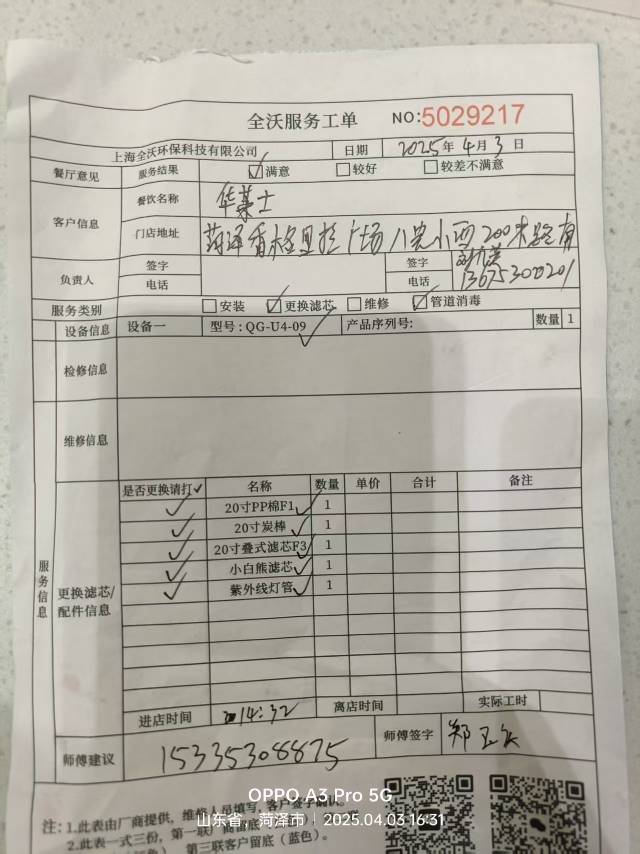 全沃服务工单 NO:5029217
上海全沃环保科技有限公司 日期 2025年4月3日
餐厅意见 服务结果 ☑满意 □较好 □较差不满意
客户信息 餐饮名称 华莱士
门店地址 菏泽香格里拉广场八实小西200米路南
负责人 签字 签字
电话 电话 13675300201
服务类别 □安装 ☑更换滤芯 □维修 ☑管道消毒
设备信息 设备一 型号:QG-U4-09 ✓ 产品序列号: 数量 1
检修信息
维修信息
服务信息
更换滤芯/配件信息
是否更换请打✓ 名称 数量 单价 合计 备注
✓ 20寸PP棉F1 ✓ 1
✓ 20寸炭棒 ✓ 1
✓ 20寸叠式滤芯F3 ✓ 1
✓ 小白熊滤芯 ✓ 1
✓ 紫外线灯管 ✓ 1
进店时间 14:32 离店时间 实际工时
师傅建议 15335308875 师傅签字 郑
注:1.此表由厂商提供,维修人员填写,客户签字确认。
2.此表一式三份,第一联厂商留底
第三联客户留底(蓝色)。
OPPO A3 Pro 5G
山东省,菏泽市 | 2025.04.03 16:31